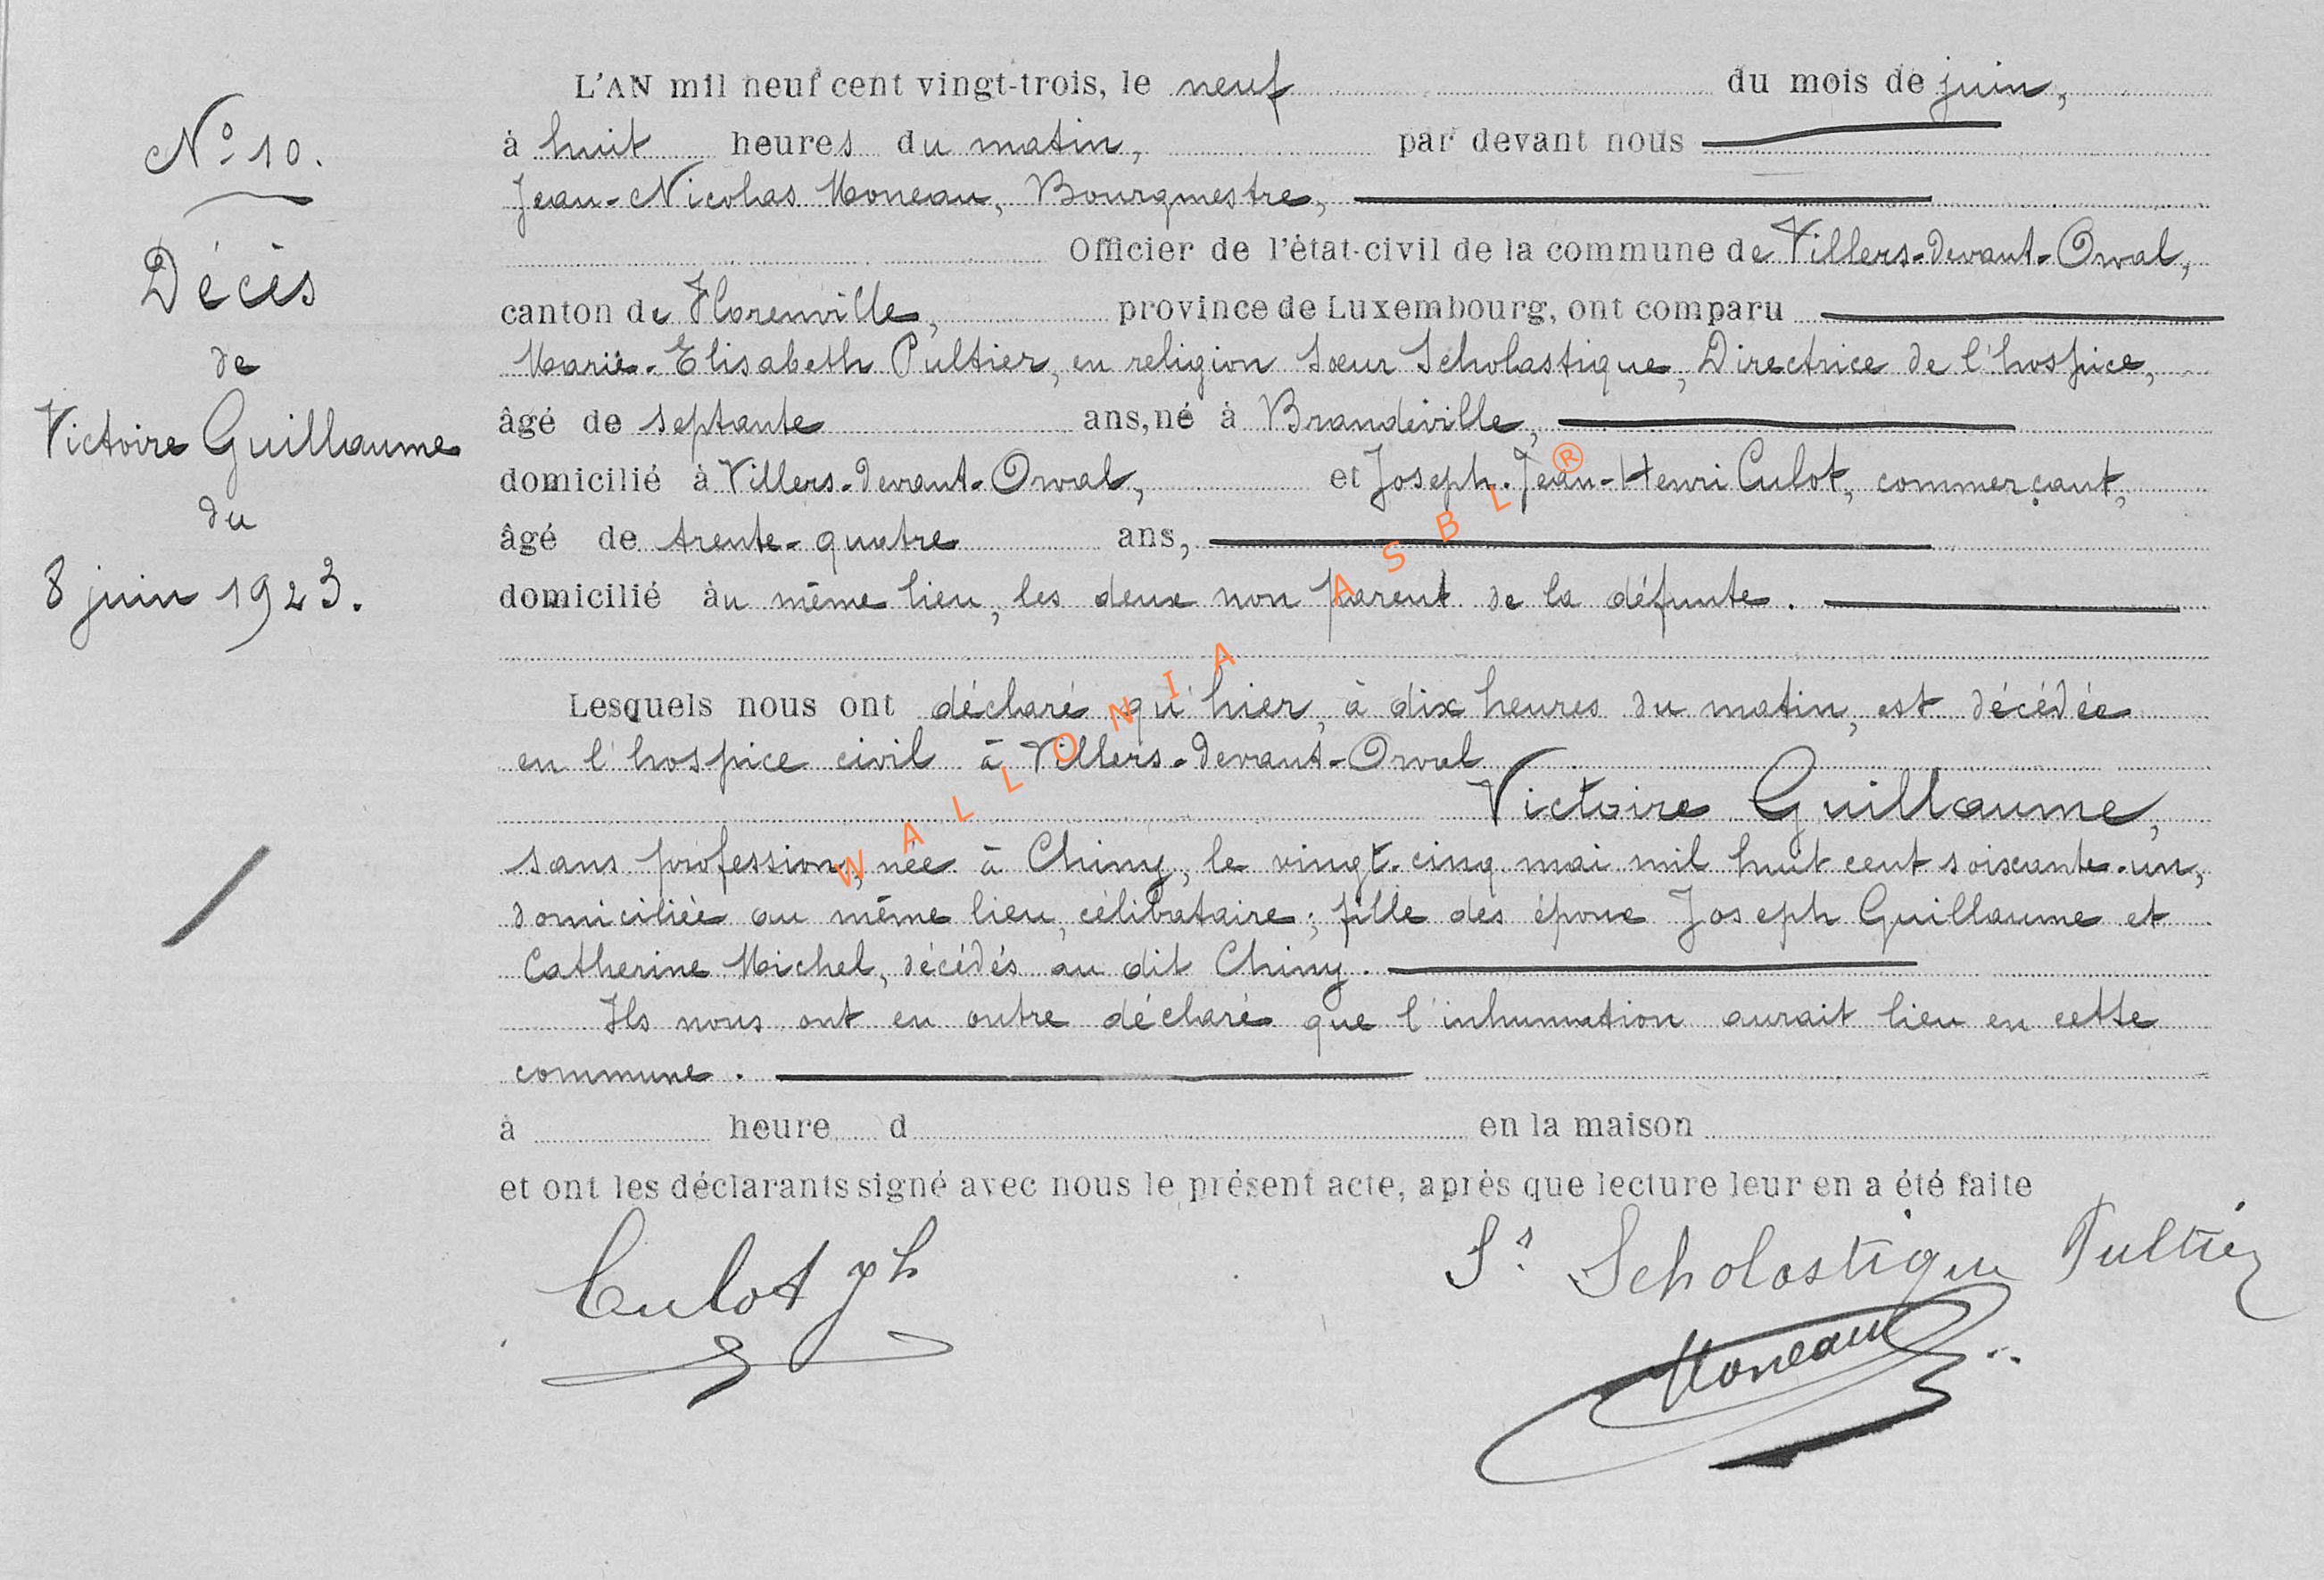 N° 10.
Décès
de
Victoire Guillaume
du
8 juin 1923.
L'AN mil neuf cent vingt-trois, le neuf du mois de juin,
à huit heures du matin, par devant nous
Jean-Nicolas Moneau, Bourgmestre,
Officier de l'état-civil de la commune de Villers-devant-Orval,
canton de Florenville, province de Luxembourg, ont comparu
Marie-Elisabeth Pultier, en religion Sœur Scholastique, Directrice de l'hospice,
âgé de septante ans, né à Brandeville,
domicilié à Villers-devant-Orval, et Joseph-Jean-Henri Culot, commerçant,
âgé de trente-quatre ans,
domicilié au même lieu, les deux non parent de la défunte.
Lesquels nous ont déclaré qu'hier, à dix heures du matin, est décédée
en l'hospice civil à Villers-devant-Orval
Victoire Guillaume,
sans profession, née à Chiny, le vingt-cinq mai mil huit cent soixante-un,
domiciliée au même lieu, célibataire; fille des époux Joseph Guillaume et
Catherine Michel, décédés au dit Chiny.
Ils nous ont en outre déclaré que l'inhumation aurait lieu en cette
commune.
à heure d en la maison
et ont les déclarants signé avec nous le présent acte, après que lecture leur en a été faite
Culot Jph
Sr Scholastique Pultier
Moneau
WALLONIA ASBL ®